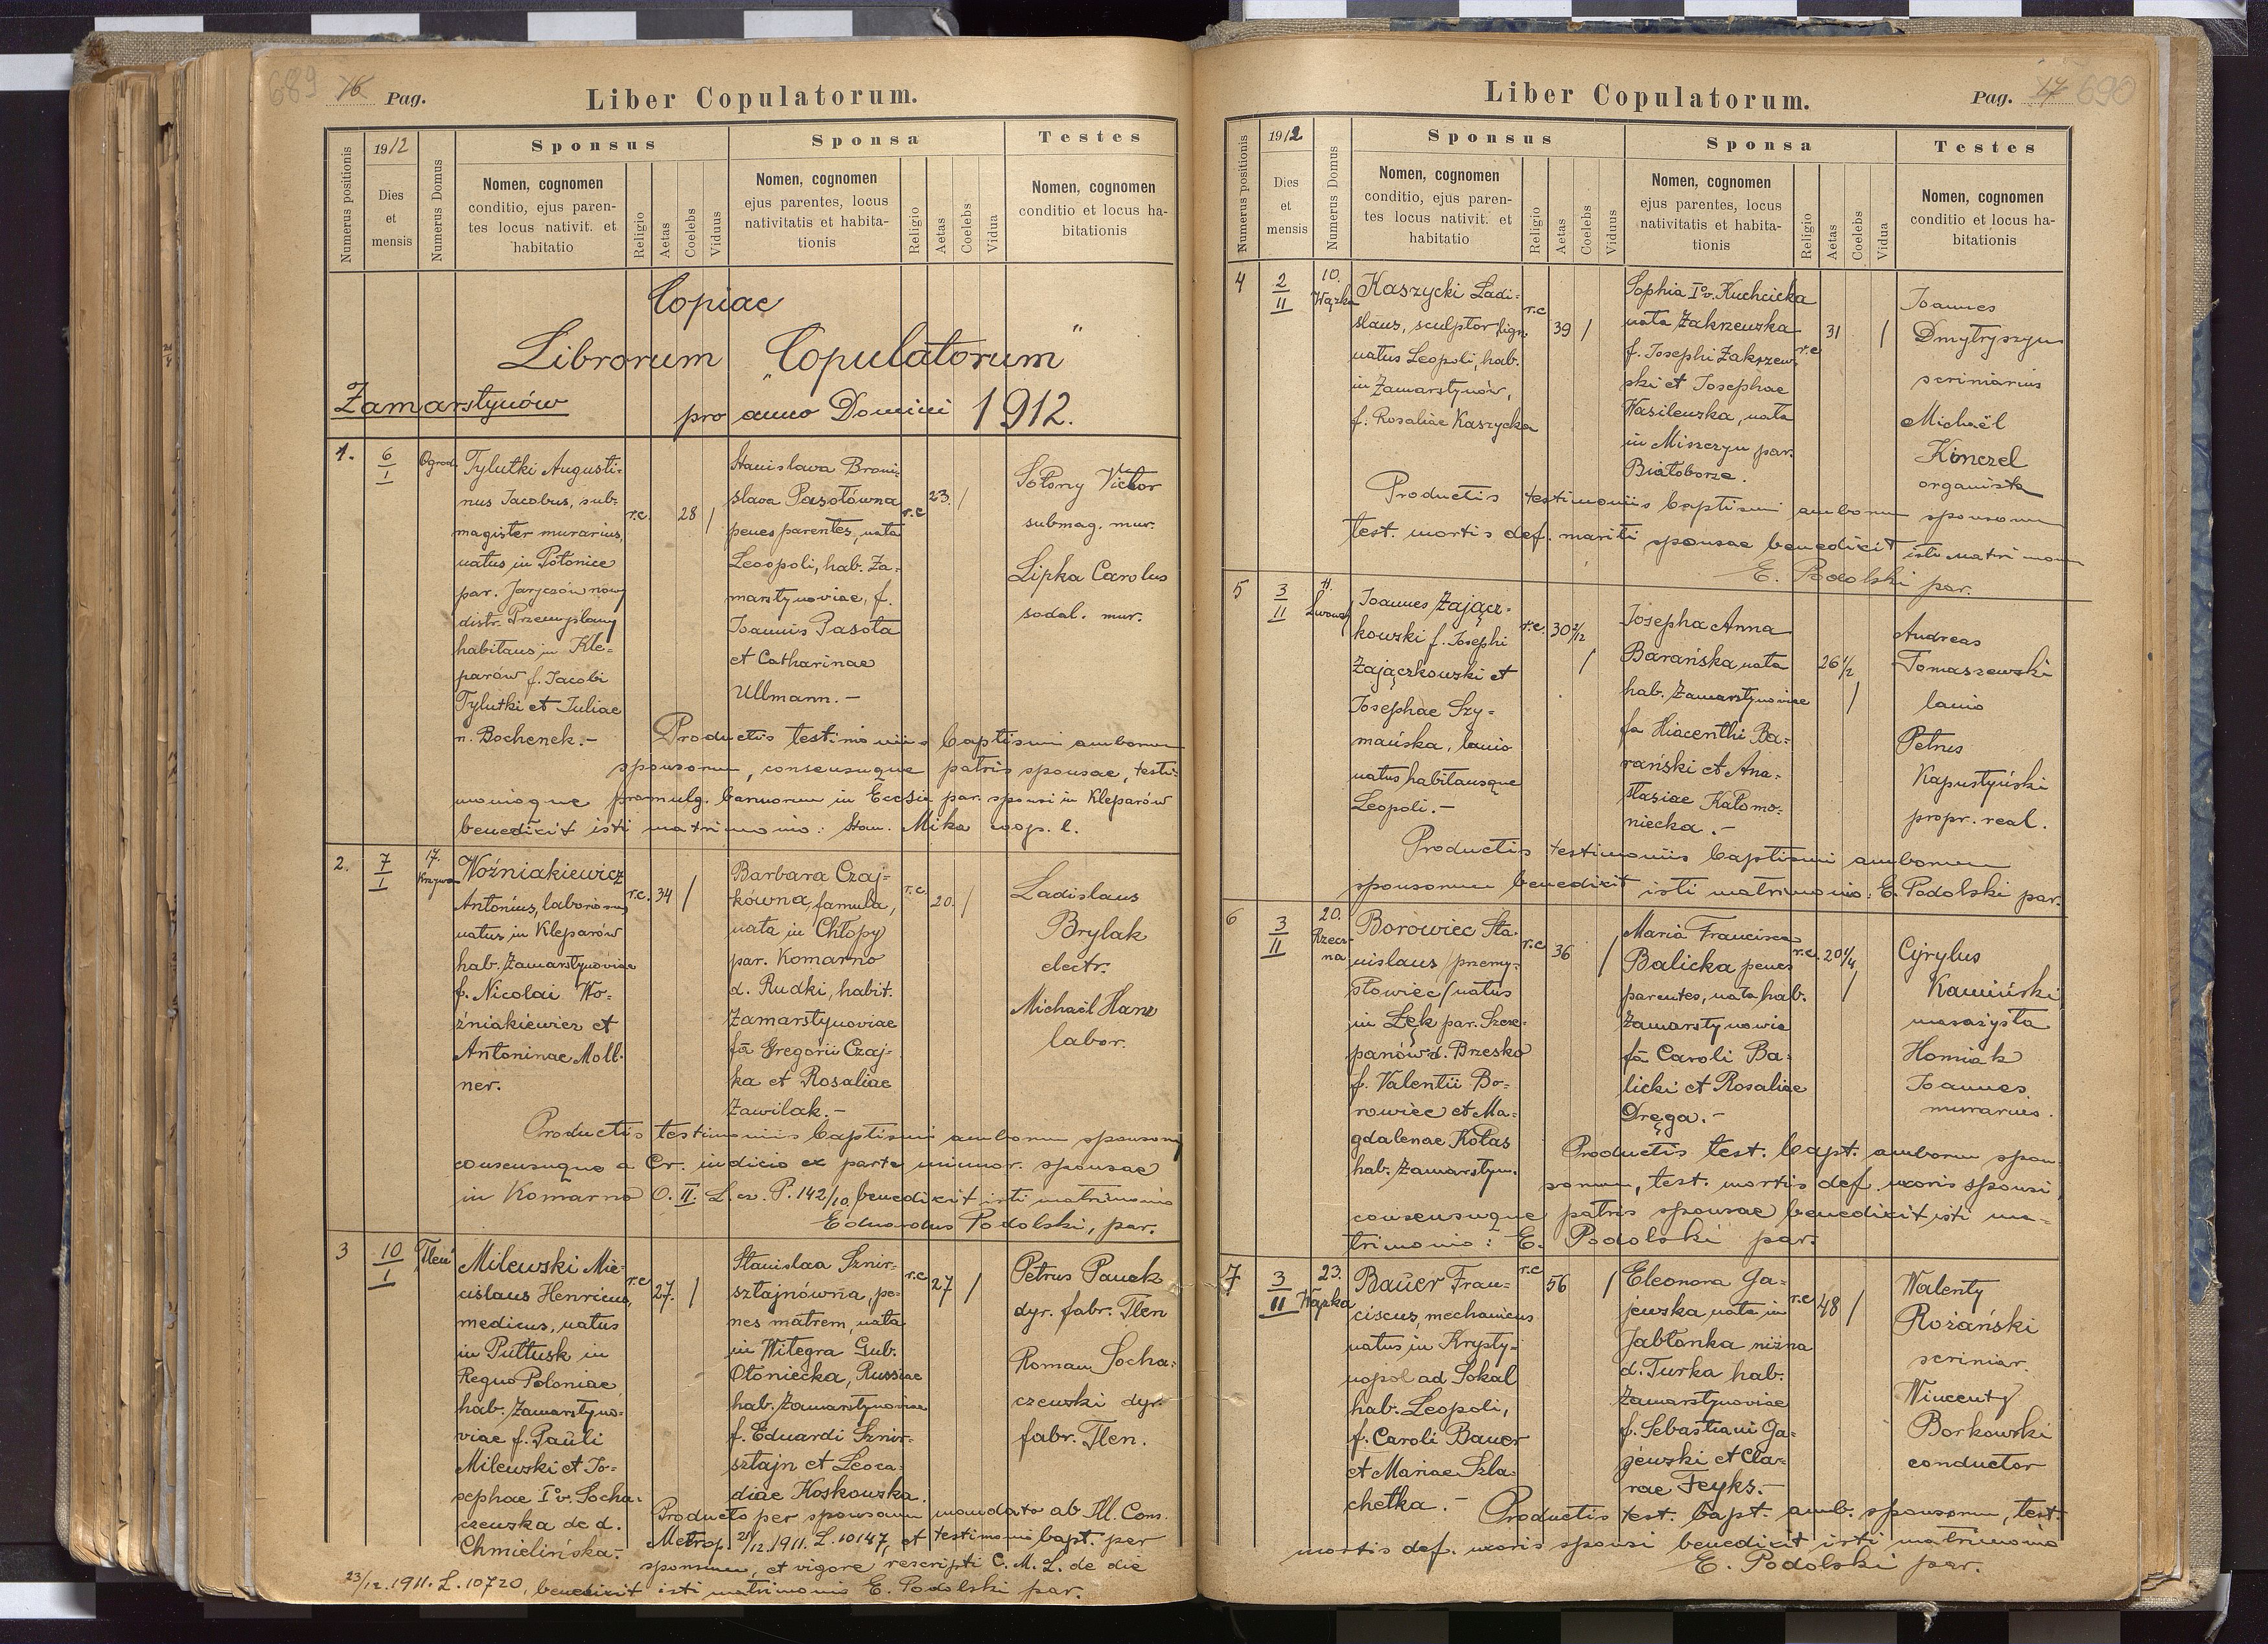 689 16 Pag. Liber Copulatorum.
Numerus positionis
1912
Dies
et
mensis
Numerus Domus
Sponsus
Nomen, cognomen
conditio, ejus paren-
tes locus nativit. et
habitatio
Religio
Aetas
Coelebs
Viduus
Sponsa
Nomen, cognomen
ejus parentes, locus
nativitatis et habita-
tionis
Religio
Aetas
Coelebs
Vidua
Testes
Nomen, cognomen
conditio et locus ha-
bitationis
Copiae
Librorum "Copulatorum"
Zamarstynów pro anno Domini 1912.
1.
6
I
Ogrod.
Tylutki Augusti-
nus Jacobus, sub-
magister murarius,
natus in Połonice
par. Jaryczów nowy
distr. Przemyślany
habitans in Kle-
parów f. Jacobi
Tylutki et Juliae
n. Bochenek.-
r.c.
28 /
Stanislava Broni-
slava Pasotówna
penes parentes, nata
Leopoli, hab. Za-
marstynoviae, f.
Joannis Pasota
et Catharinae
Ullmann.-
r.c
23. /
Sołony Victor
submag. mur.
Lipka Carolus
sodal. mur.
Productis testimoniis baptismi amborum
sponsorum, consensuque patris sponsae, testi-
monioque promulg. bannorum in Eccsia par. sponsi in Kleparów
benedixit isti matrimonio: Stan. Mika coop. l.
2.
7
I
17.
Krzywa
Woźniakiewicz
Antonius, laboriosus
natus in Kleparów
hab. Zamarstynoviae
f. Nicolai Wo-
źniakiewicz et
Antoninae Moll-
ner.
r.c.
34 /
Barbara Czaj-
kówna, famula,
nata in Chłopy
par. Komarno
d. Rudki, habit.
Zamarstynoviae
fa Gregorii Czaj-
ka et Rosaliae
Zawilak.-
r.c.
20. /
Ladislaus
Brylak
electr.
Michaël Hanz
labor.
Productis testimoniis baptismi amborum sponsorum
consensuque a Cr. iudicio ex parte minor. sponsae
in Komarno O. II. L. cz. P. 142/10 benedixit isti matrimonio
Eduardus Podolski, par.
3
10
I
Tlen
Milewski Mie-
cislaus Henricus,
medicus, natus
in Pułtusk in
Regno Poloniae,
hab. Zamarstyno-
viae f. Pauli
Milewski et Jo-
sephae Iᵒ v. Socha-
czewska de d.
Chmielińska.-
r.c
27. /
Stanislaa Sznir-
sztajnówna, pe-
nes matrem, nata
in Witegra Gub.
Ołoniecka, Russiae
hab. Zamarstynoviae
f. Eduardi Sznir-
sztajn et Leoca-
diae Koskowska.
r.c
27 /
Petrus Pauek
dyr. fabr. Tlen
Roman Socha-
czewski dyr.
fabr. Tlen.
Producto per sponsum mandato ab Ill. Cons.
Metrop. 21/12.1911. L. 10147, et testimonio bapt. per
sponsum, et vigore rescripti C. M. L. de die
23/12.1911. L. 10720, benedixit isti matrimonio E. Podolski par.
Liber Copulatorum. Pag. 17 690
Numerus positionis
1912
Dies
et
mensis
Numerus Domus
Sponsus
Nomen, cognomen
conditio, ejus paren-
tes locus nativit. et
habitatio
Religio
Aetas
Coelebs
Viduus
Sponsa
Nomen, cognomen
ejus parentes, locus
nativitatis et habita-
tionis
Religio
Aetas
Coelebs
Vidua
Testes
Nomen, cognomen
conditio et locus ha-
bitationis
4
2
II
10.
Wązka
Kaszycki Ladi-
slaus, sculptor lign.
natus Leopoli, hab.
in Zamarstynów,
f. Rosaliae Kaszycka
r.c
39 /
Sophia Iᵒ v. Kuchcicka
nata Zakrzewska
f. Josephi Zakrzew-
ski et Josephae
Wasilewska, nata
in Miszczyn par.
Białoborze.
r.c
31 /
Joannes
Dmytryszyn
scriniarius
Michaël
Kinczel
organista
Productis testimoniis baptismi amborum sponsorum
test. mortis def. mariti sponsae benedixit isti matrimonio
E. Podolski par.
5
3
II
11.
Lwowsk
Joannes Zającz-
kowski f. Josephi
Zajączkowski et
Josephae Szy-
mańska, lanio
natus habitansque
Leopoli.-
r.c.
30 2/12
/
Josepha Anna
Barańska nata
hab. Zamarstynoviae
fa Hiacenthi Ba-
rański et Ana-
stasiae Katomo-
niecka.-
26 1/2
/
Andreas
Tomaszewski
lanio
Petrus
Kapustyński
propr. real.
Productis testimoniis baptismi amborum
sponsorum benedixit isti matrimonio: E. Podolski par.
6
3
II
20.
Rzecz-
na
Borowiec Sta-
nislaus /przemy-
słowiec/ natus
in Łęk par. Szcze-
panów d. Brzesko
f. Valentii Bo-
rowiec et Ma-
gdalenae Kołas
hab. Zamarstyn.
r.c
36 /
Maria Francisca
Balicka penes
parentes, nata hab.
Zamarstynowie
fa Caroli Ba-
licki et Rosaliae
Dręga.-
r.c.
20 1/4
/
Cyrylus
Kamiński
masażysta
Homiak
Joannes
murarius.
Productis test. bapt. amborum spon-
sorum, test. mortis def. uxoris sponsi,
consensuque patris sponsae benedixit isti ma-
trimonio: E. Podolski par.
7
3
II
23.
Wązka
Bauer Fran-
ciscus, mechanicus
natus in Krysty-
nopol ad Sokal
hab. Leopoli,
f. Caroli Bauer
et Mariae Szla-
chetka.-
r.c
56 /
Eleonora Ga-
jewska nata in
Jabłonka niżna
d. Turka hab.
Zamarstynoviae
f. Sebastiani Ga-
jewski et Cla-
rae Feyks.-
r.c
48 /
Walenty
Rożański
scriniar.
Wincenty
Borkowski
conductor
Productis test. bapt. amb. sponsorum, test.
mortis def. uxoris sponsi benedixit isti matrimonio
E. Podolski par.